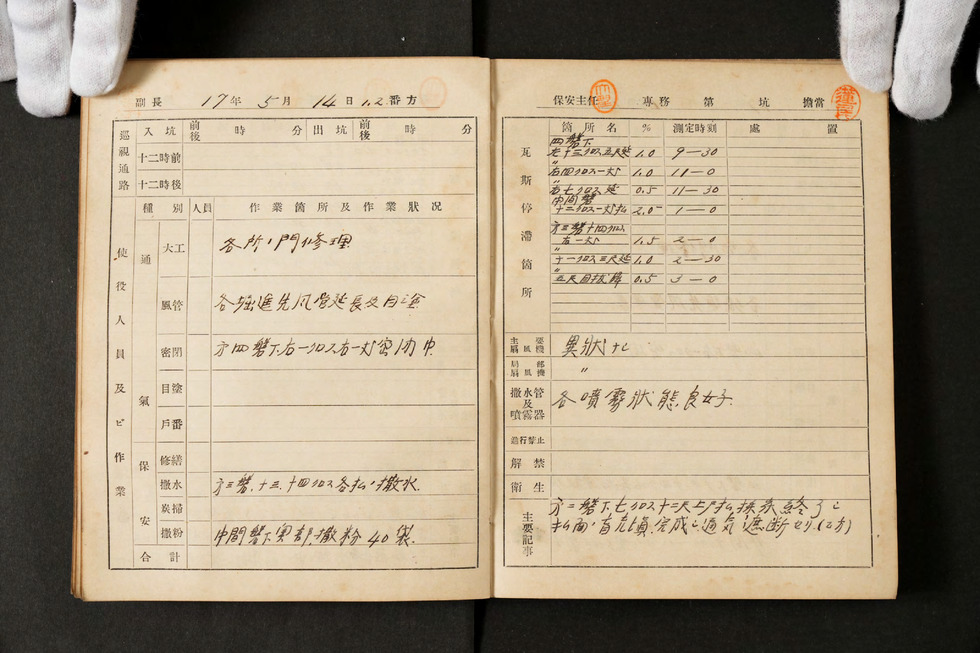 副長 17年 5月 14日 1.2番方
巡視通路 入坑 前後 時 分 出坑 前後 時 分
十二時前
十二時後
使役人員及ビ作業 種別 人員 作業箇所及作業狀況
通氣 大工 各所ノ門修理
風管 各堀進先風管延長及目塗
密閉 方四盤下右一クロス右一片密閉中
目塗
戶番
保安 修繕
撒水 方三盤、十三、十四クロス各払ノ撒水
炭掃
撒粉 中間盤下奧部撒粉40袋
合計
保安主任 専務 第 坑 擔當
瓦斯停滯箇所 箇所名 % 測定時刻 處置
四盤下
左十三クロス五尺延 1.0 9—30
〃右四クロス一片 1.0 11—0
〃右七クロス延 0.5 11—30
中間盤
十二クロス一片払 2.0 1—0
方三盤十四クロス
右一片 1.5 2—0
〃十一クロス三尺延 1.0 2—30
五尺目抜 0.5 3—0
主要扇風機 異狀ナし
局部扇風機 〃
撒水管及噴霧器 各噴霧狀態良好
進行禁止
解禁
衛生
主要記事 方三盤下七クロス十三尺上片払採炭終了し
払面ノ 充塡完成し通氣ヲ遮断セリ